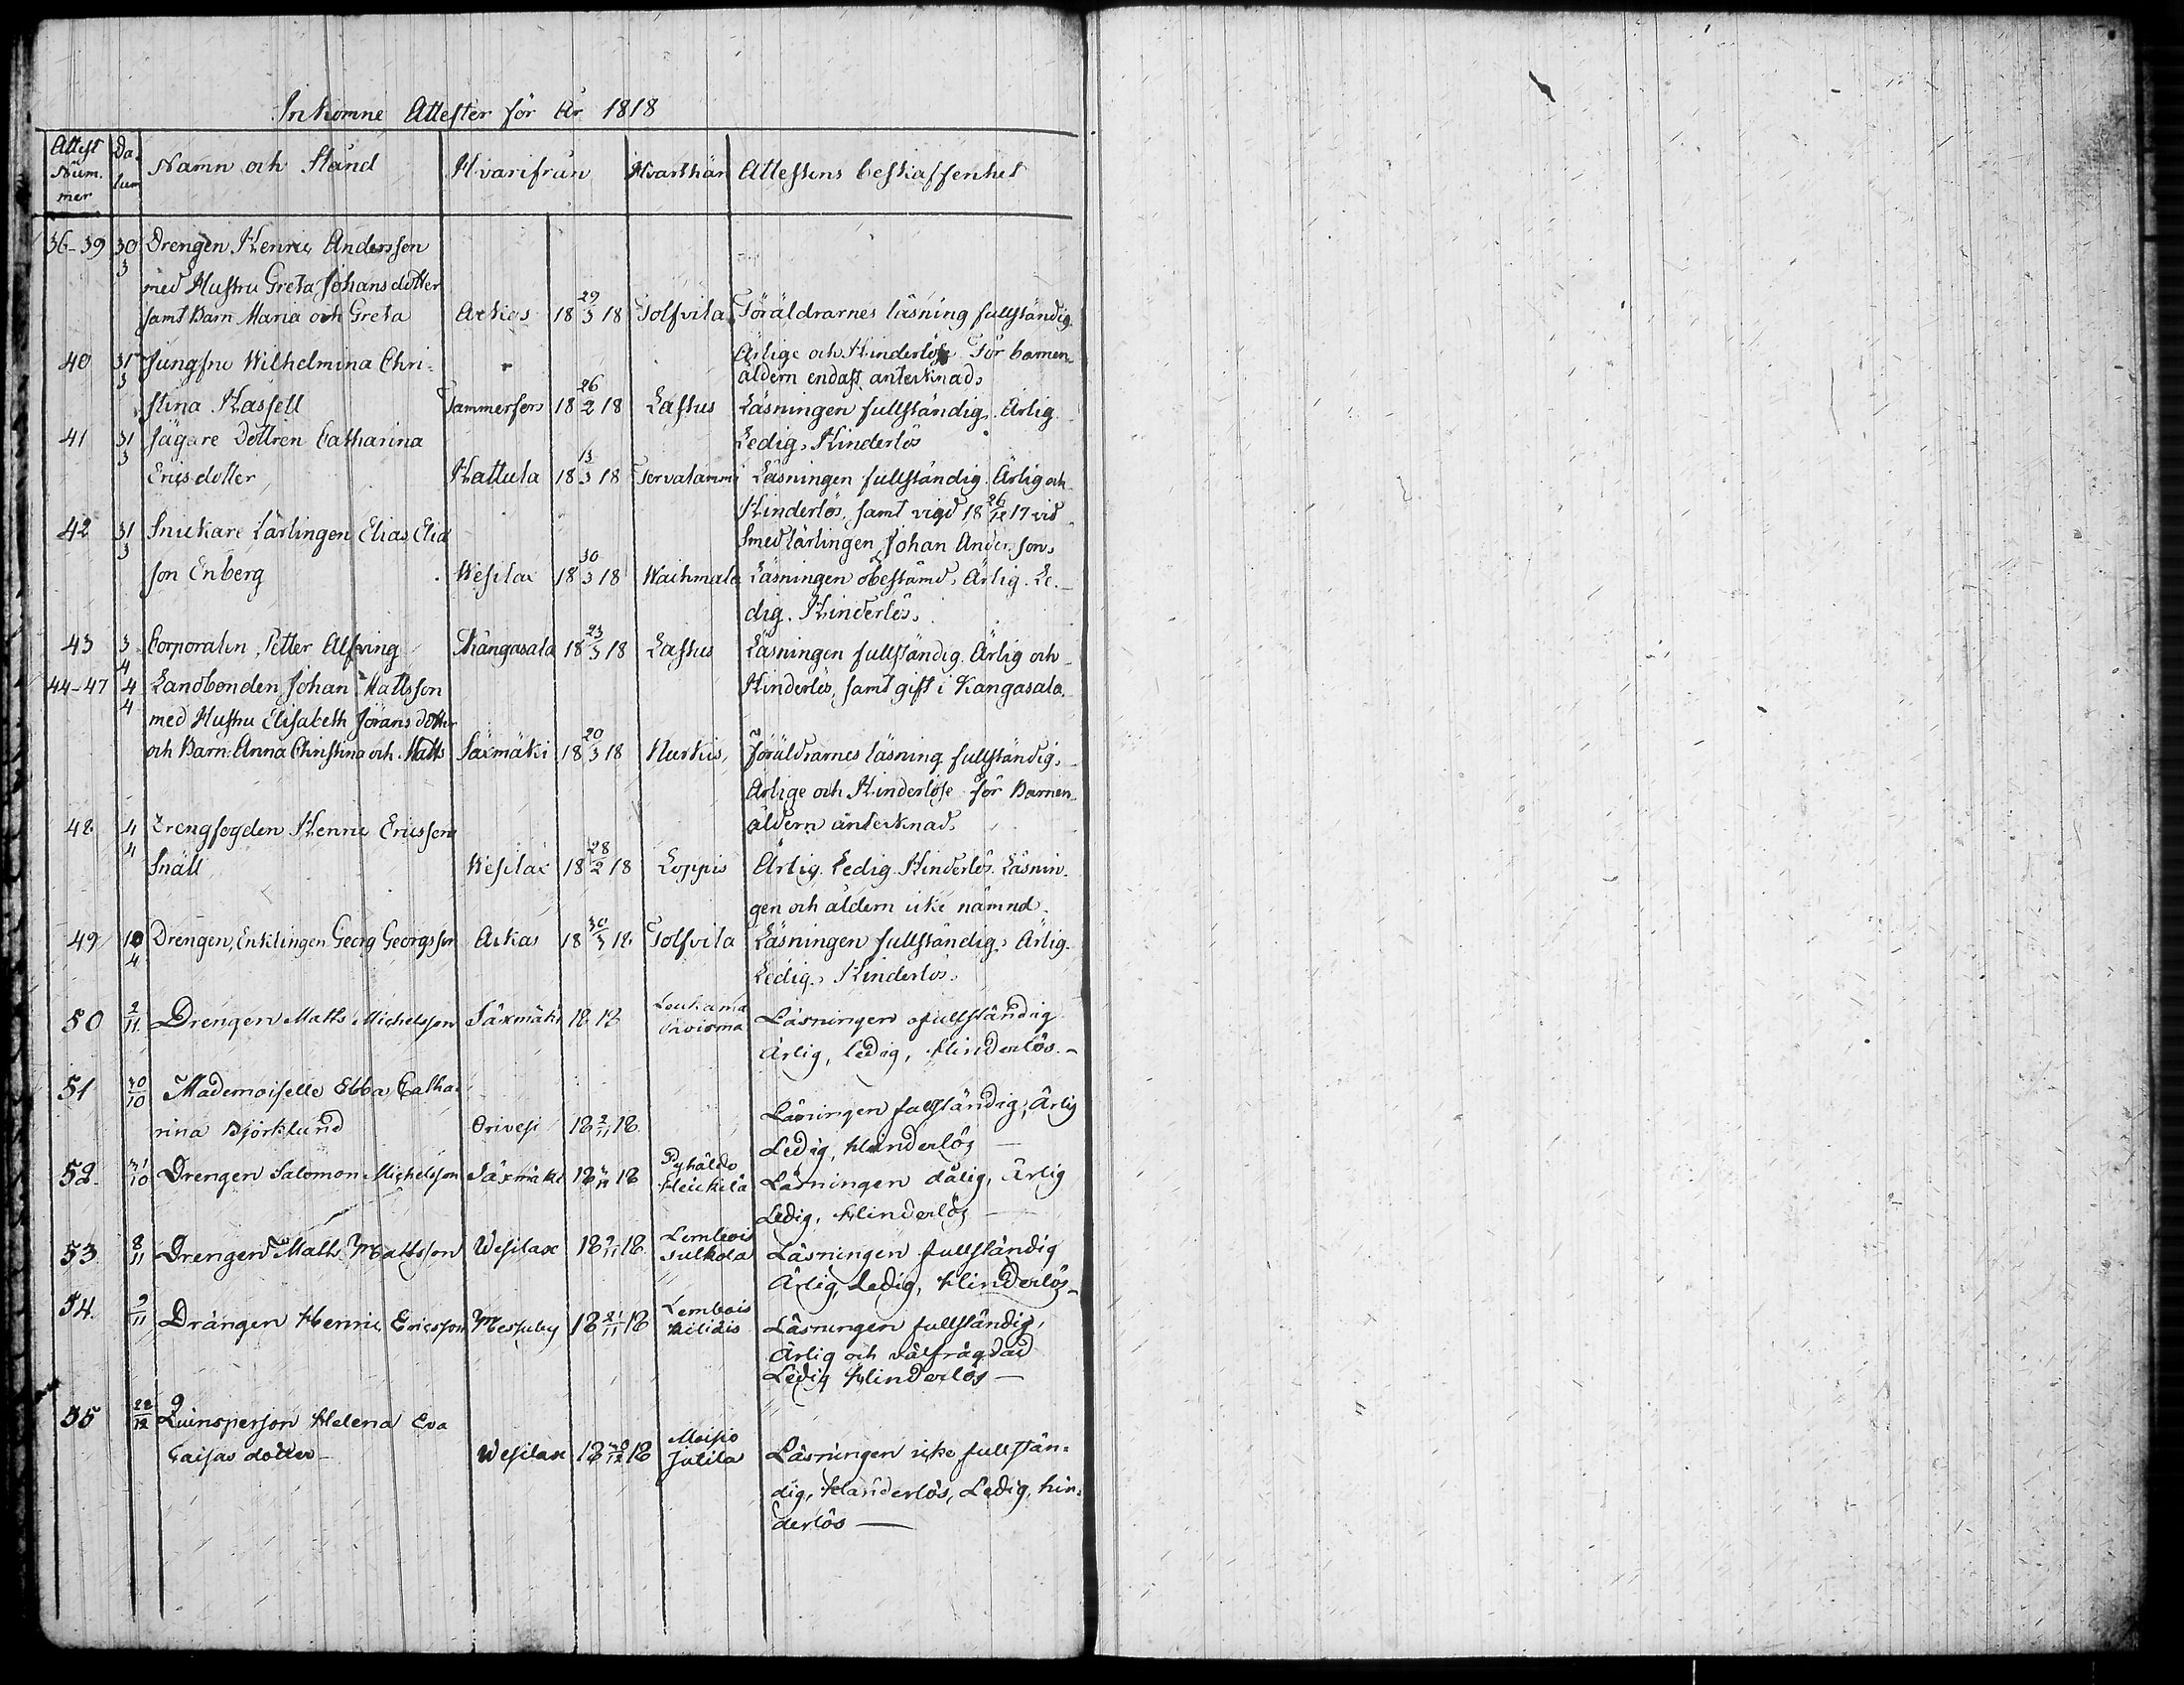 Inkomne Attester för År 1818
Attest Num. mer Da. tum Namn och Stånd Hvarifrån Hvarthän Attestens beskaffenhet
36-39 30/3 Drengen Henric Andersson
med Hustru Greta Johansdotter
samt Barn Maria och Greta Ackas 18 29/3 18 Tolfvila Föräldrarnes läsning fullständig.
Ärlige och Hinderlöse För barnen
40 31/3 Jungfru Wilhelmina Chri-
åldern endast antecknad.
stina Hassell Tammerfors 18 26/2 18 Lastus Läsningen fullständig. Ärlig.
41 31/3 Jägare Dottren Catharina Ledig, Hinderlös
Ericsdotter Hattula 18 13/3 18 Tervalammi Läsningen fullständig. Ärlig och
Hinderlös, samt vigd 18 26/12 17 vid
42 31/3 Snickare Lärlingen Elias Elia
Smedlärlingen Johan Andersson.
son Enberg Wesilax 18 30/3 18 Waihmala Läsningen obestämd. Ärlig. Le-
dig. Hinderlös.
43 3/4 Corporalen Petter Alfving Kangasala 18 23/3 18 Lastus Läsningen fullständig. Ärlig och
44-47 4/4 Landbonden Johan Mattsson Hinderlös, samt gift i Kangasala.
med Hustru Elisabeth Jöransdotter
och Barn: Anna Christina och Matts Säxmäki 18 20/3 18 Nurkis, Föräldrarnes läsning fullständig.
Ärlige och Hinderlöse för Barnen
48 4/4 Drengfogden Henric Ericsson åldern antecknad.
Snäll Wesilax 18 28/2 18 Loppis Ärlig. Ledig. Hinderlös. Läsnin-
gen och åldern icke nämnd.
49 10/4 Drengen, Enklingen Georg Georgsson Ackas 18 30/3 18 Tolfvila Läsningen fullständig. Ärlig.
Ledig. Hinderlös.
50 2/11 Drengen Matts Michelsson Säxmäki 18 18 Läsningen ofullständig
Ärlig, ledig, Hinderlös.-
51 30/10 Mademoiselle Ebba Catha-
Läsningen fullständig, Ärlig
rina Björklund Orivesi 18 2/11 18
Ledig, Hinderlös —
52. 31/10 Drengen Salomon Michelsson Säxmäki 18 18 Pyhäldo Heickilä Läsningen dålig, Ärlig
Ledig, Hinderlös —
53. 8/11 Drengen Matts Mattsson Wesilax 18 9/11 18 Lembois Sulkola Läsningen fullständig
Ärlig, Ledig, Hinderlös -
54. 9/11 Drängen Henric Ericsson Messuby 18 21/11 18 Lembois Läsningen fullständig,
Ärlig och välfrägdad
Ledig Hinderlös —
55 22/12 Quinsperson Helena Eva
Caisas dotter - Wesilax 18 18 Moisio Jutila Läsningen icke fullstän-
dig, Klanderlös, Ledig, hin-
derlös —